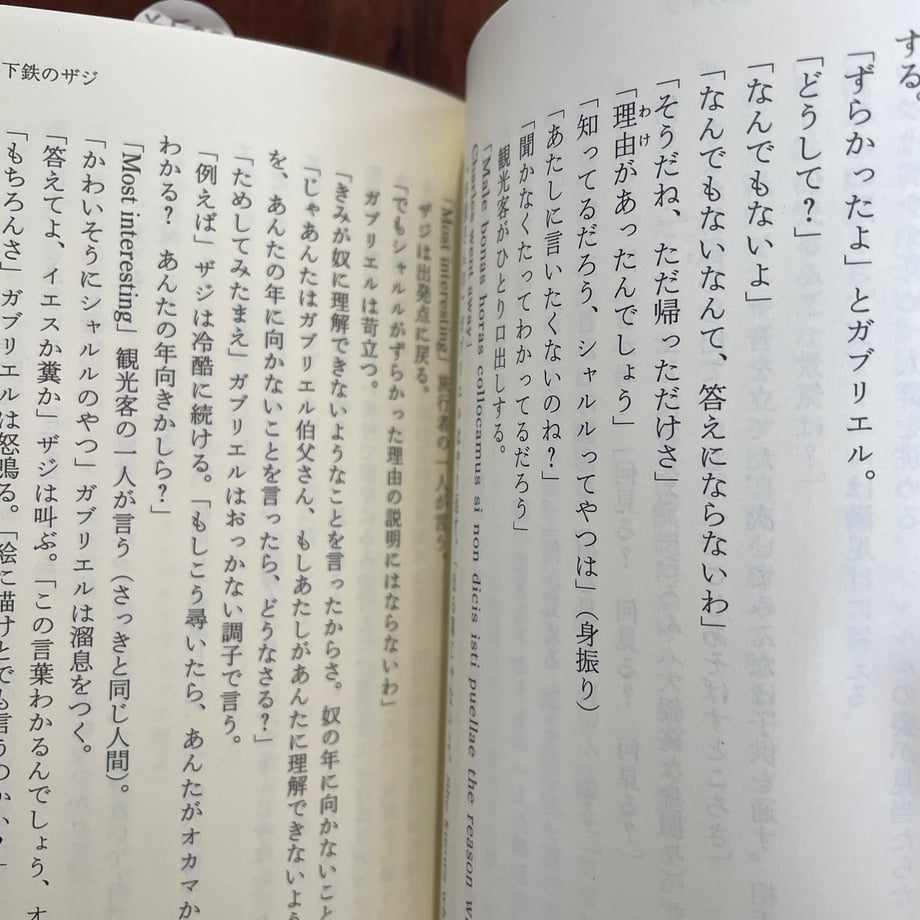 する。
「ずらかったよ」とガブリエル。
「どうして?」
「なんでもないよ」
「なんでもないなんて、答えにならないわ」
「そうだね、ただ帰っただけさ」
「理由があったんでしょう」
わけ
「知ってるだろう、シャルルってやつは」(身振り)
「あたしに言いたくないのね?」
「聞かなくたってわかってるだろう」
観光客がひとり口出しする。
「Male bonas horas collocamus si non dicis isti puellae the reason
Charles went away」
下鉄のザジ
「Most interesting」旅行者の一人が言う。
ザジは出発点に戻る。
「でもシャルルがずらかった理由の説明にはならないわ」
ガブリエルは苛立つ。
「きみが奴に理解できないようなことを言ったからさ。奴の年に向かないこと
「じゃあんたはガブリエル伯父さん、もしあたしがあんたに理解できないよう
を、あんたの年に向かないことを言ったら、どうなさる?」
「ためしてみたまえ」ガブリエルはおっかない調子で言う。
「例えば」ザジは冷酷に続ける。「もしこう尋いたら、あんたがオカマか
わかる? あんたの年向きかしら?」
「Most interesting」観光客の一人が言う(さっきと同じ人間)。
「かわいそうにシャルルのやつ」ガブリエルは溜息をつく。
「答えてよ、イエスか糞か」ザジは叫ぶ。「この言葉わかるんでしょう、オ
「もちろんさ」ガブリエルは怒鳴る。「絵に描けとでも言うのかい?」